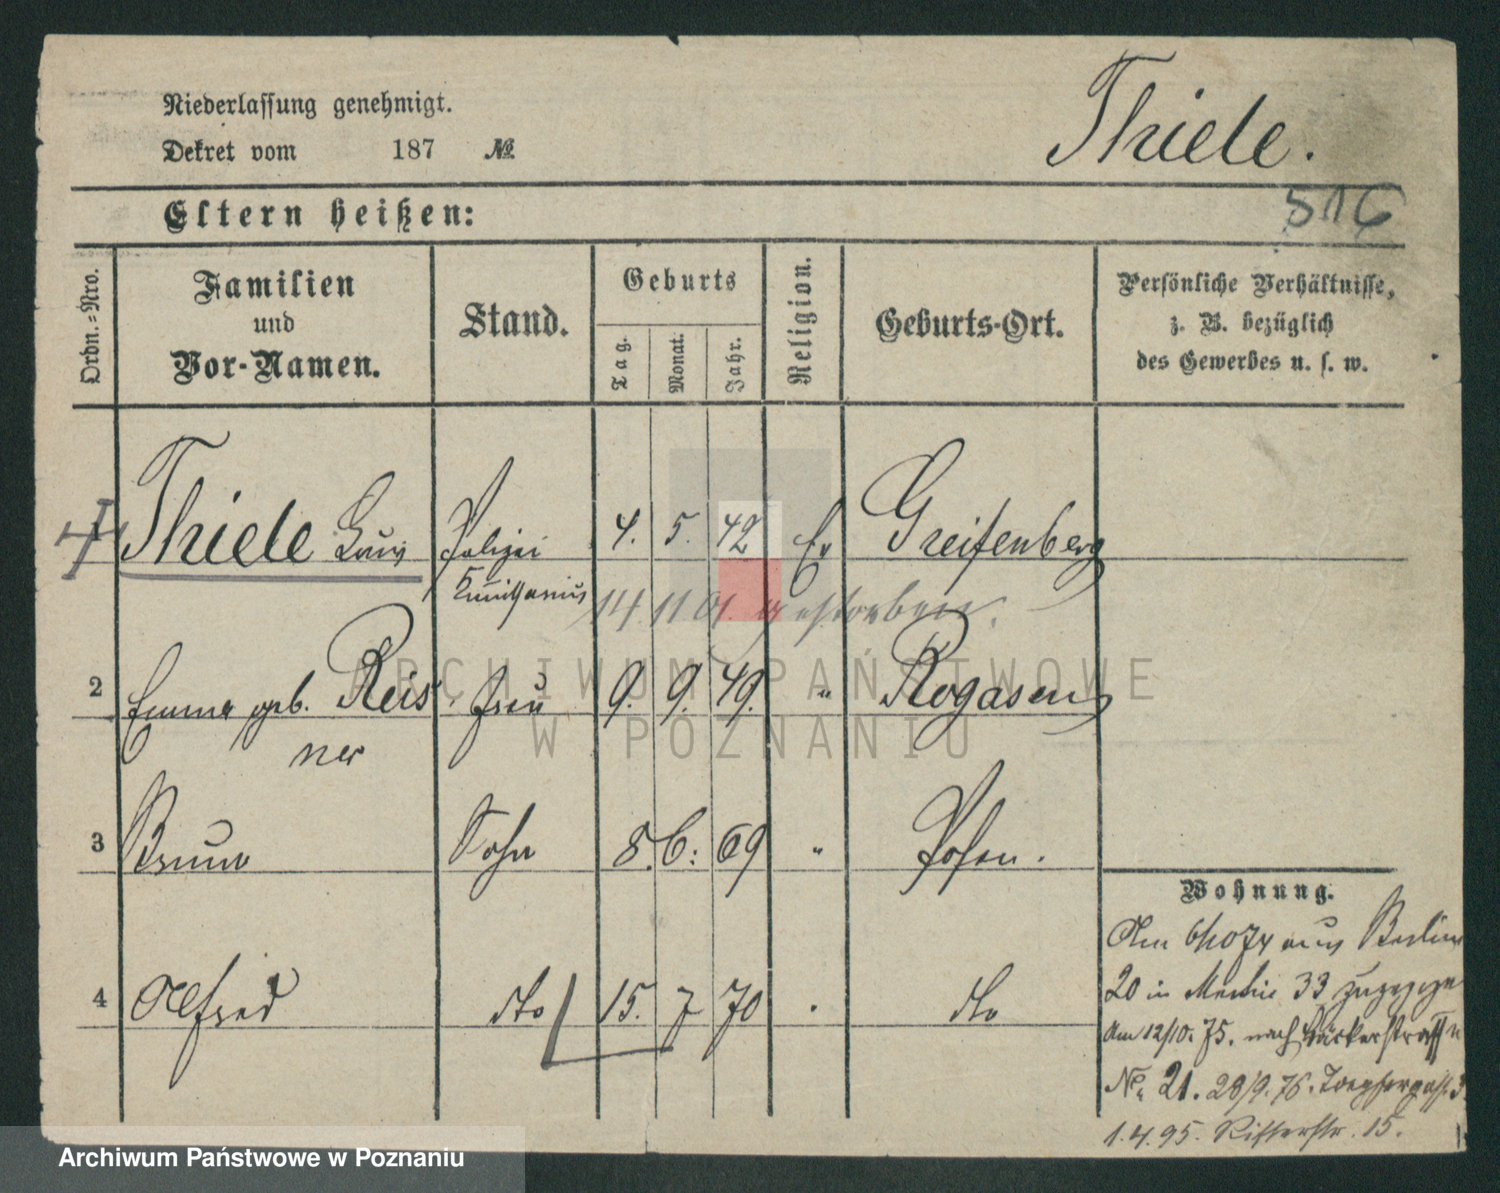 Niederlassung genehmigt.
Dekret vom 187 №
Thiele.
516
Eltern heißen:
Ordn.-Nro.
Familien
und
Vor-Namen.
Stand.
Geburts
Tag.
Monat.
Jahr.
Religion.
Geburts-Ort.
Persönliche Verhältnisse,
z. B. bezüglich
des Gewerbes u. s. w.
Thiele Louis Polizei 4. 5. 42 Ev Greifenberg
14 11 01 gestorben.
2 Emma geb. Reis Frau 9. 9. 49. " Rogasen
ner
3 Bruno Sohn 8. 6. 69 " Posen.
4 Alfred dto 15. 7 70 dto
Wohnung.
Am aus Berlin
20 in 33
Am 12/10. 75. nach Bäckerstraße
No 21. 28/9. 76.
1.4.95. Ritterstr. 15.
ARCHIWUM PAŃSTWOWE
W POZNANIU
Archiwum Państwowe w Poznaniu